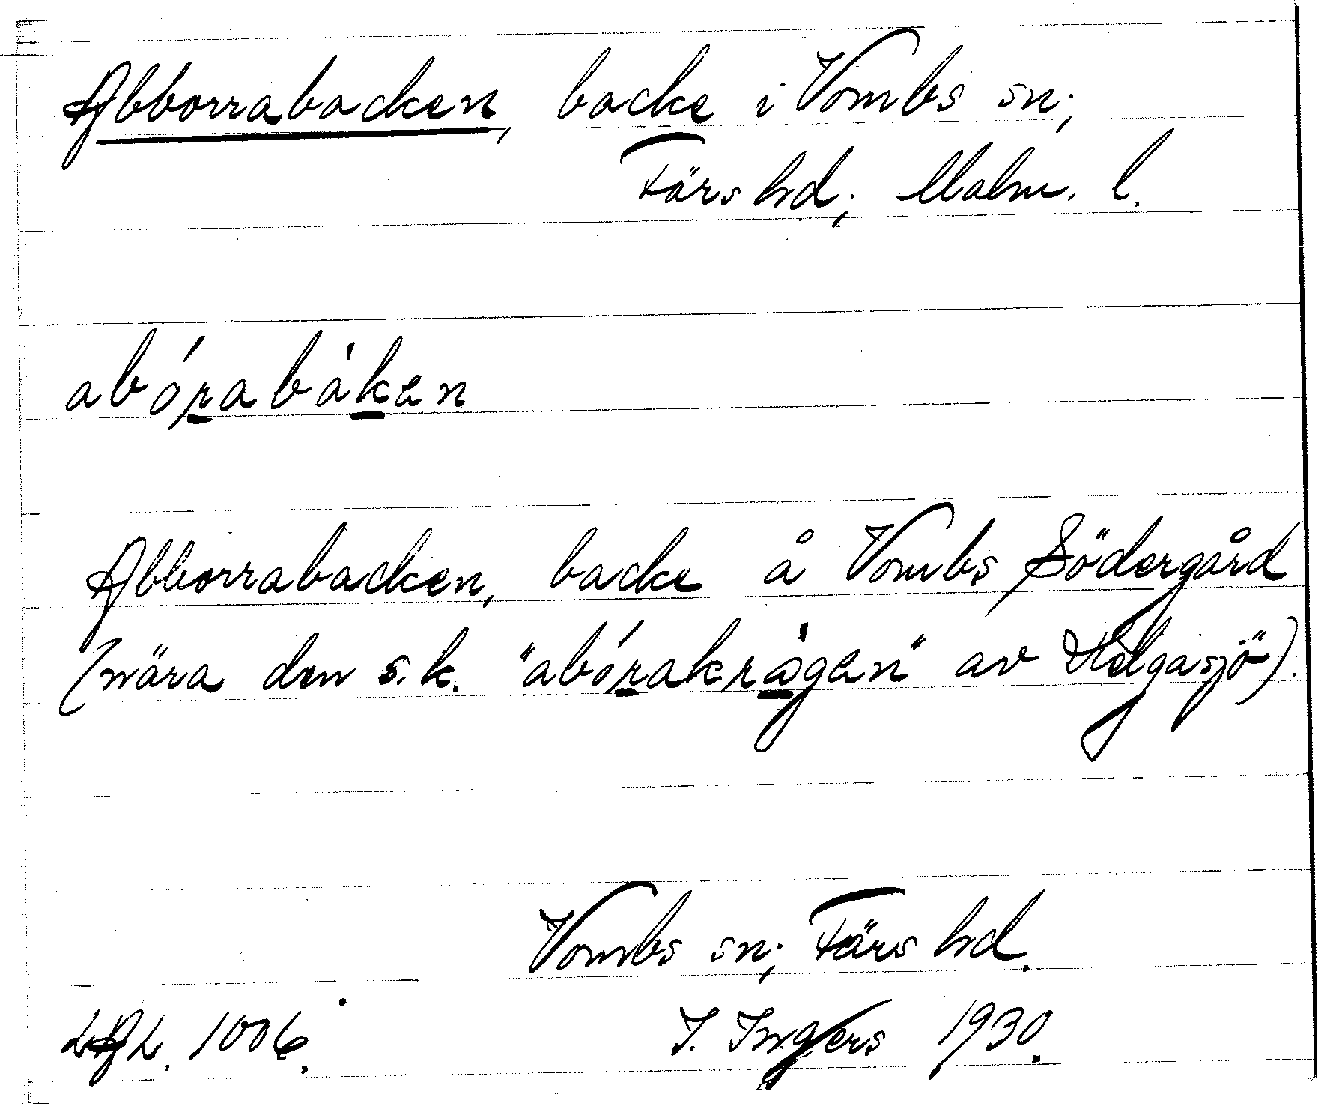 Abborrabacken, backe i Vombs sn;
Färs hd; Malm. l.
abórabàken
Abborrabacken, backe å Vombs Södergård
(nära den s.k. "abórakrågen" av Helgasjö).
Vombs sn; Färs hd.
I. Ingers 1930.
LAL. 1006.